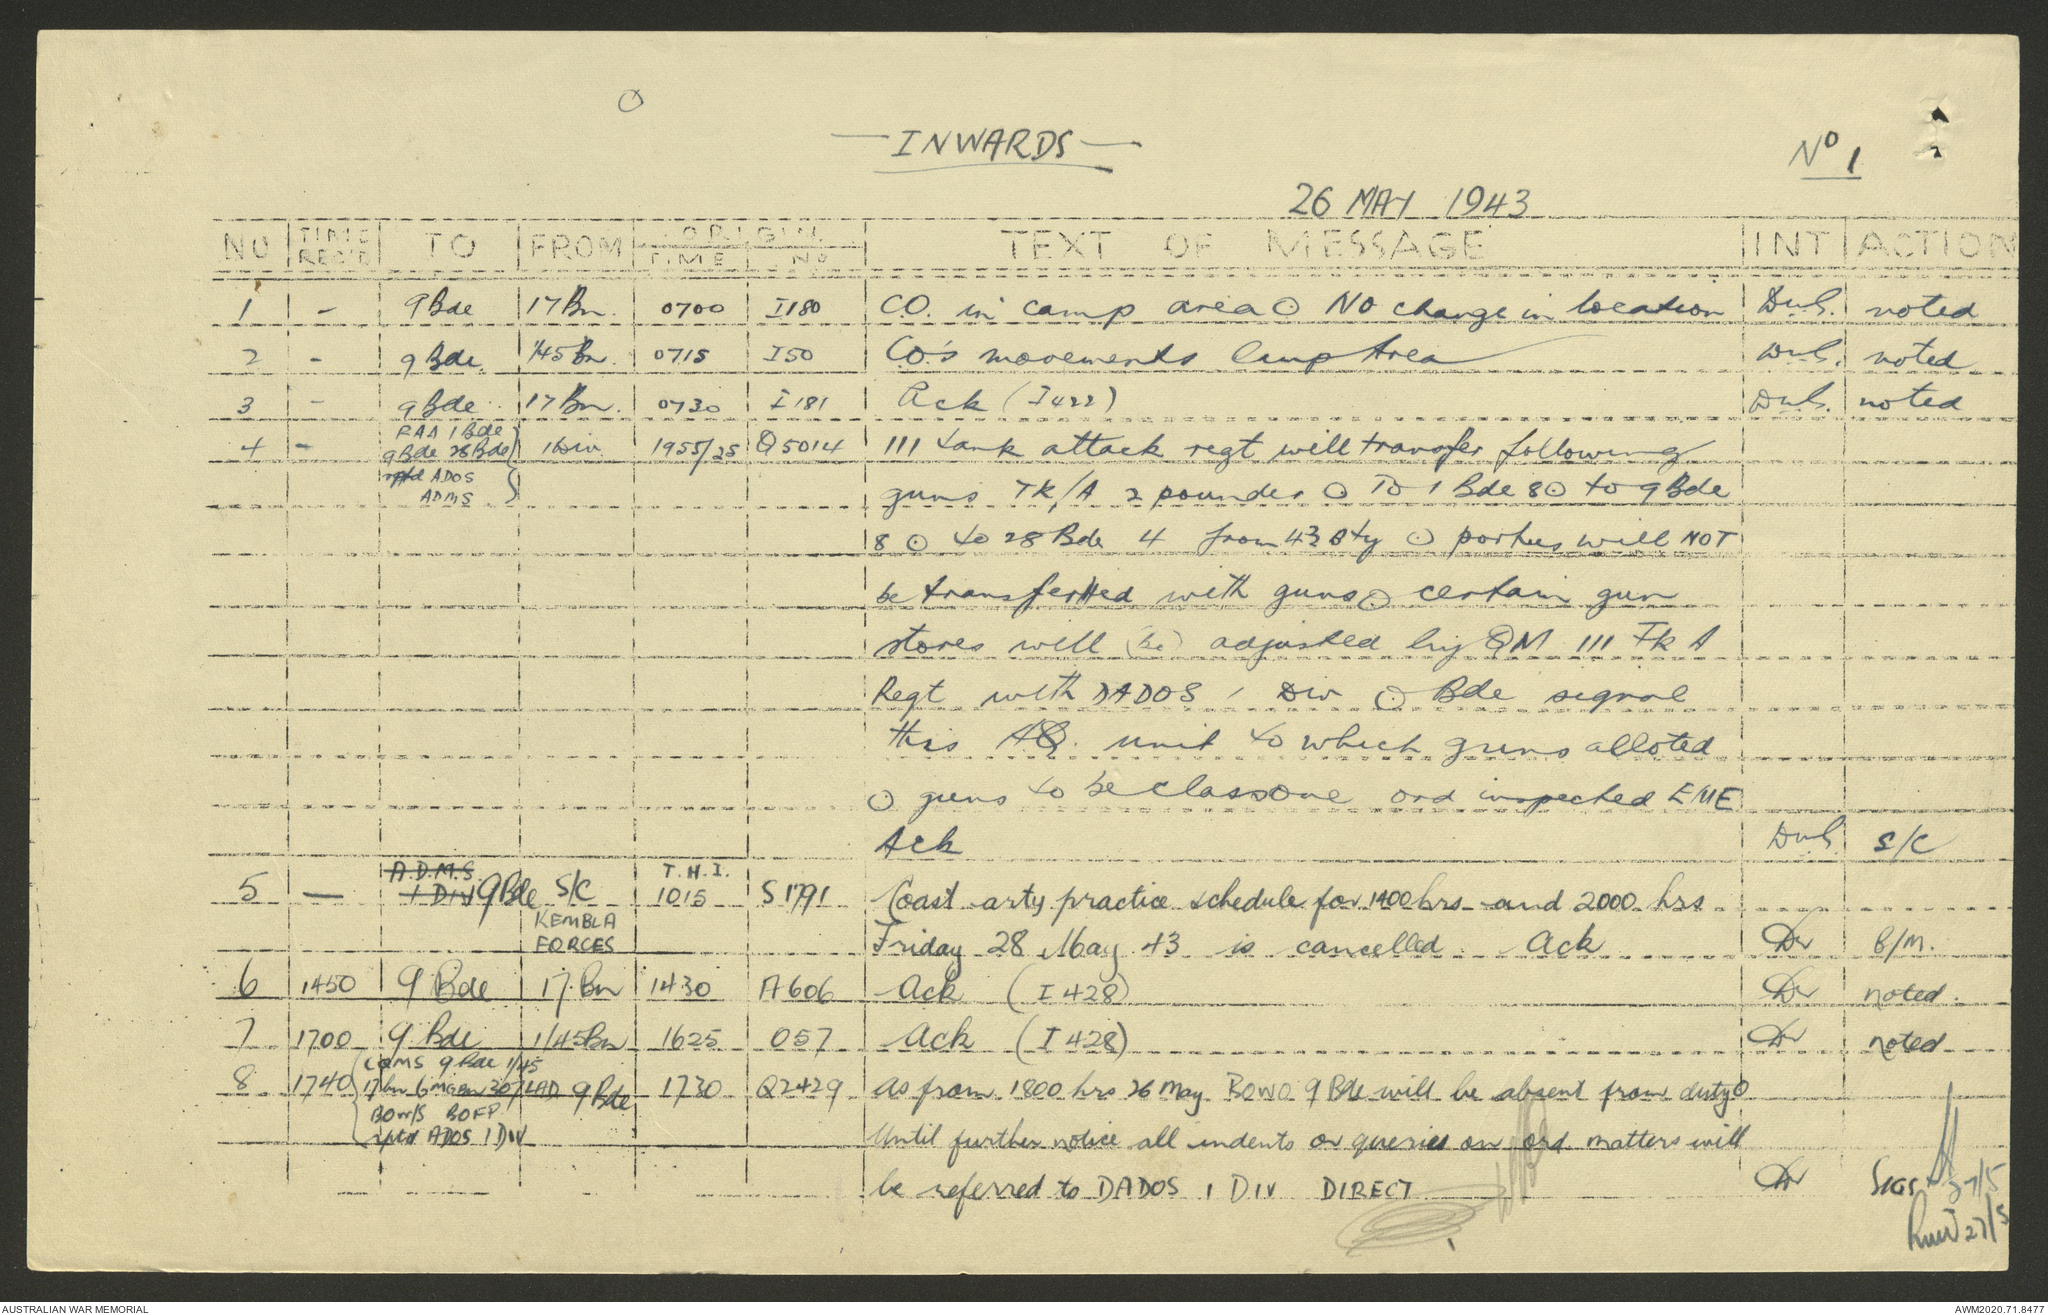 — INWARDS —
No 1
26 MAY 1943
NO | TIME REC'D | TO | FROM | ORIGIN TIME | NO | TEXT OF MESSAGE | INT | ACTION
1 - 9 Bde 17 Bn. 0700 I180 C.O. in camp area ⊙ NO change in location noted
2 - 9 Bde. 1/45 Bn. 0715 I50 CO's movements Camp Area noted
3 - 9 Bde 17 Bn. 0730 I181 Ack (I422) noted
RAA 1 Bde
4 - 9 Bde 28 Bde 1 Div 1955/25 Q5014 111 tank attack regt will transfer following
rptd ADOS
ADMS guns TK/A 2 pounder ⊙ TO 1 Bde 8 ⊙ to 9 Bde
8 ⊙ to 28 Bde 4 from 43 Bty ⊙ portees will NOT
be transferred with guns ⊙ certain gun
stores will (be) adjusted by QM 111 Tk A
Regt with DADOS 1 Div ⊙ Bde signal
this AQ. unit to which guns alloted
⊙ guns to be class one ord inspected EME
Ack S/C
A.D.M.S. T.H.I.
5 — 1 DIV 9 Bde S/C 1015 S1791 Coast arty practice schedule for 1400 hrs and 2000 hrs
KEMBLA
FORCES Friday 28 May 43 is cancelled. Ack B/M.
6 1450 9 Bde 17 Bn 1430 A606 Ack (I428) noted.
7 1700 9 Bde 1/45 Bn 1625 057 Ack (I428) noted
COMS 9 Bde 1/45
8 1740 17 bn 6 MG Bn 307 LAD 9 Bde 1730 Q2429 As from 1800 hrs 26 May BOWO 9 Bde will be absent from duty ⊙
BOWS BOFP
rptd ADOS 1 DIV Until further notice all indents or queries on ord matters will
be referred to DADOS 1 DIV DIRECT SIGS 27/5
27/5
AUSTRALIAN WAR MEMORIAL
AWM2020.71.8477